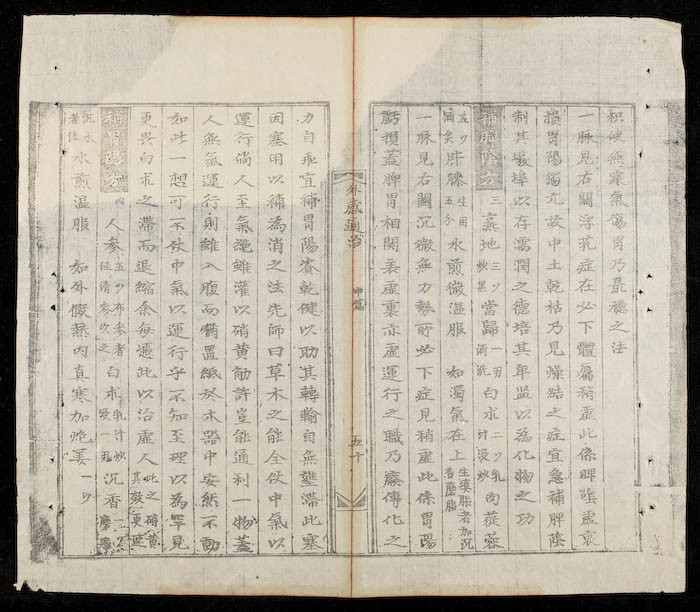 積使無寒氣傷胃乃最穩之法
一脉見右關浮乳症在必下體屬稍虛此係脾陰虛衰
損胃陽獨亢故中土乾枯乃見燥結之症宜急補脾陰
制其壤埠以存濡潤之德培其卑監以為化物之功
補脾陰方 三 熟地 三𠃌 炒黑 當歸 一𠃌 酒洗 白朮 二𠃌 乳汁浸炒 肉蓯蓉
五𠃌 牛膝 生用五分 水煎微温服 如濁氣在上 生痰胀者加沉香磨服
一脉見右關沉微無力勢所必下症見稍虛此係胃陽
虧損蓋脾胃相関表虛裏亦虛運行之職乃癈傳化之
外感通治 中篇 五十
力自乖宜補胃陽資乾健以助其轉輸自無壅滞此塞
因塞用以補為消之法先師曰草木之能全仗中氣以
運行倘人至氣絶雖灌以硝黄肋許豈能通利一物蓋
人無氣運行則雖入腹而獨置紙於木器中安然不動
如此一想可不仗中氣以運行乎不知至理以為罕見
更畏白朮之滞而退縮余每慿此以治虛人 此之硝黄其效更速
補胃陽方 四 人參 五𠃌 布參者佳清參次之 白朮 乳汁炒 一両 沉香 磨
沉水者佳 水煎温服 如外假熱内真寒加炮姜 一𠃌